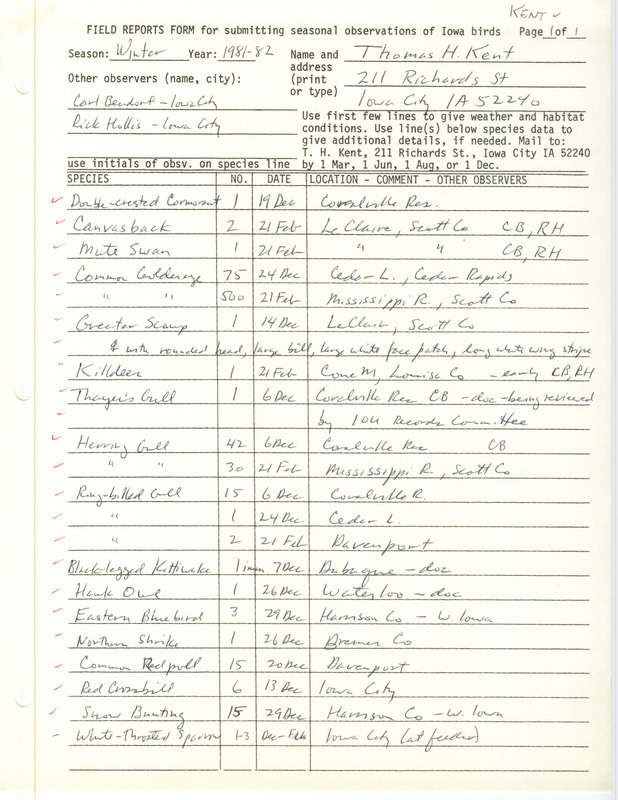 KENT ✓
FIELD REPORTS FORM for submitting seasonal observations of Iowa birds Page 1 of 1
Season: Winter Year: 1981-82 Name and Thomas H. Kent
address
Other observers (name, city): (print 211 Richards St
or type) Iowa City IA 52240
Carl Bendorf - Iowa City
Rick Hollis - Iowa City
Use first few lines to give weather and habitat
conditions. Use line(s) below species data to
give additional details, if needed. Mail to:
T. H. Kent, 211 Richards St., Iowa City IA 52240
use initials of obsv. on species line by 1 Mar, 1 Jun, 1 Aug, or 1 Dec.
SPECIES NO. DATE LOCATION - COMMENT - OTHER OBSERVERS
Double-crested Cormorant 1 19 Dec Coralville Res.
Canvasback 2 21 Feb Le Claire, Scott Co CB, RH
Mute Swan 1 21 Feb " " CB, RH
Common Goldeneye 75 24 Dec Cedar L., Cedar Rapids
" " 500 21 Feb Mississippi R., Scott Co
Greater Scaup 1 14 Dec LeClair, Scott Co
with rounded head, large bill, large white face patch, long white wing stripe
Killdeer 1 21 Feb Cone M, Louisa Co - early CB, RH
Thayer's Gull 1 6 Dec Coralville Res CB - doc - being reviewed
by IOU Records Committee
Herring Gull 42 6 Dec Coralville Res CB
" " 30 21 Feb Mississippi R, Scott Co
Ring-billed Gull 15 6 Dec Coralville R.
" 1 24 Dec Cedar L.
" 2 21 Feb Davenport
Black-legged Kittiwake 1 imm 7 Dec Dubuque - doc
Hawk Owl 1 26 Dec Waterloo - doc
Eastern Bluebird 3 29 Dec Harrison Co - W. Iowa
Northern Shrike 1 26 Dec Bremer Co
Common Redpoll 15 20 Dec Davenport
Red Crossbill 6 13 Dec Iowa City
Snow Bunting 15 29 Dec Harrison Co - W. Iowa
White-Throated Sparrow 1-3 Dec-Feb Iowa City (at feeder)